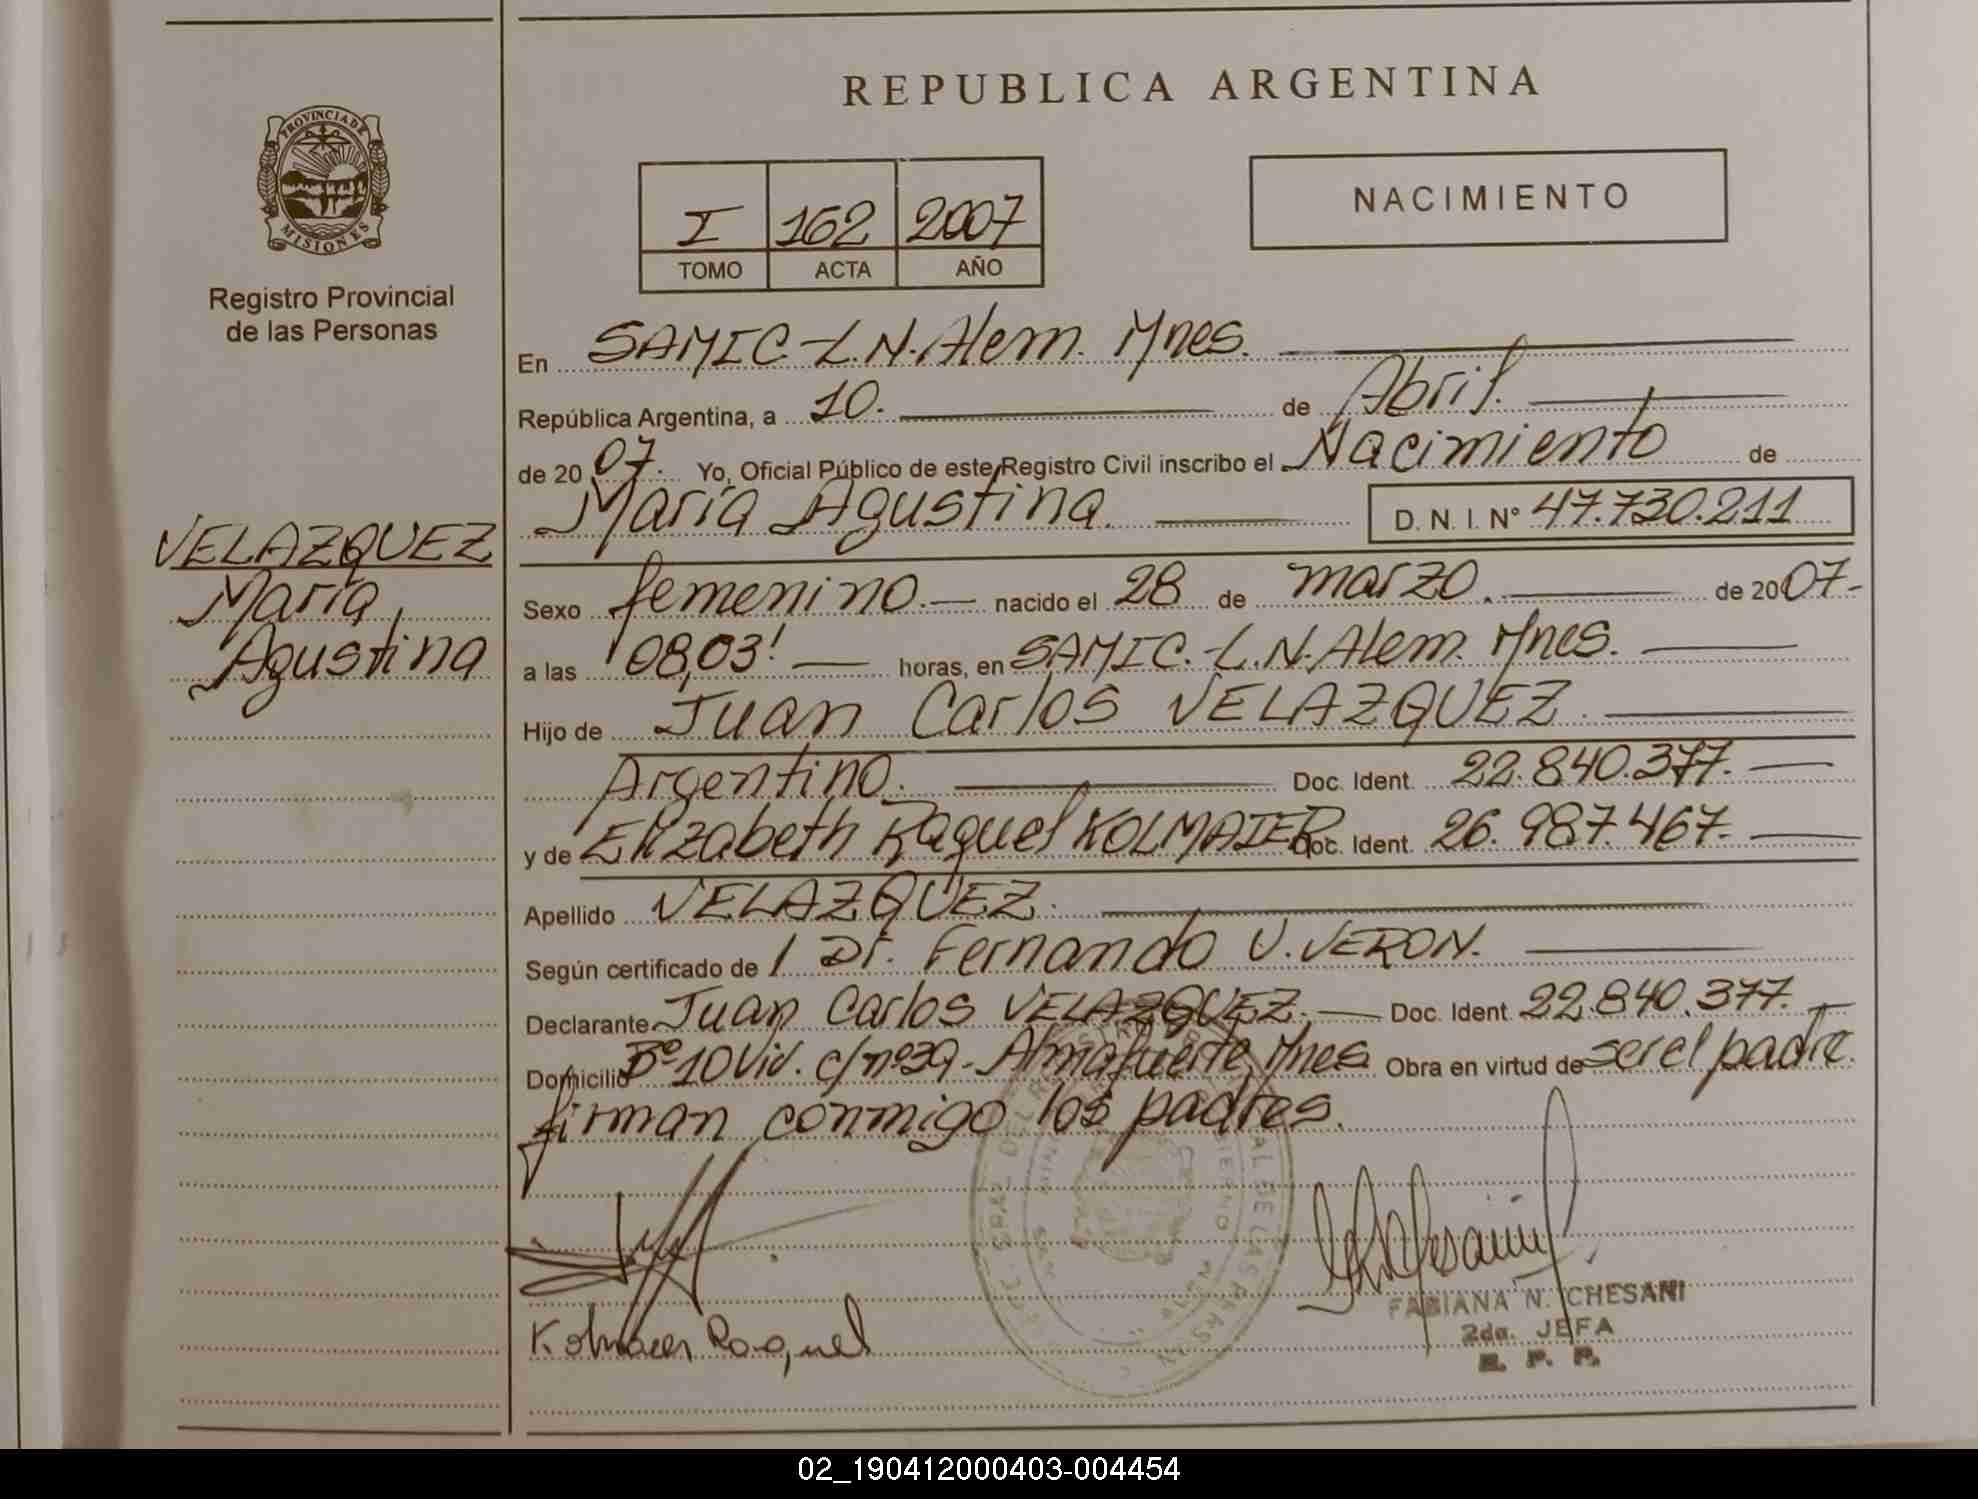 REPUBLICA ARGENTINA
PROVINCIA DE
MISIONES
Registro Provincial
de las Personas
I 162 2007
TOMO ACTA AÑO
NACIMIENTO
En SAMIC.-L.N.Alem. Mnes.
República Argentina, a 10. de Abril.
de 2007. Yo, Oficial Público de este Registro Civil inscribo el Nacimiento de
María Agustina. D. N. I. Nº 47.730.211
VELAZQUEZ
María
Agustina
Sexo femenino.- nacido el 28 de marzo. de 2007-
a las 08,03! horas, en SAMIC.-L.N.Alem. Mnes.
Hijo de Juan Carlos VELAZQUEZ.
Argentino. Doc. Ident. 22.840.377.
y de Elizabeth Raquel KOLMAIER Doc. Ident. 26.987.467.
Apellido VELAZQUEZ.
Según certificado de / Dr. Fernando U. VERON.
Declarante Juan Carlos VELAZQUEZ. Doc. Ident. 22.840.377.
Domicilio Bº10Viv. c/nº39-Almafuerte, Mnes Obra en virtud de ser el padre.
firman conmigo los padres.
FABIANA N. CHESANI
2da. JEFA
R. P. P.
Raquel
02_190412000403-004454